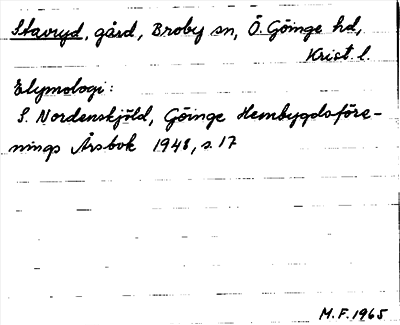 Stavryd, gård, Broby sn, Ö. Göinge hd,
Krist. l.
Etymologi:
S. Nordenskjöld, Göinge Hembygdsföre-
nings Årsbok 1948, s. 17
M.F. 1965